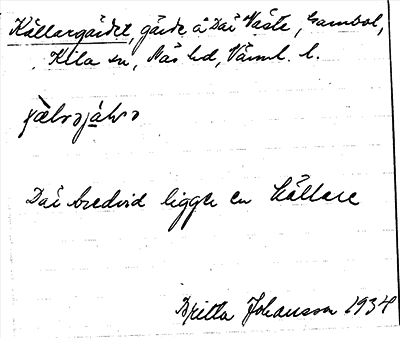 Källargärdet, gärde å Där Väste, Gambol,
Kila sn, Näs hd, Värml. l.
Där bredvid ligger en källare
Britta Johansson 1934